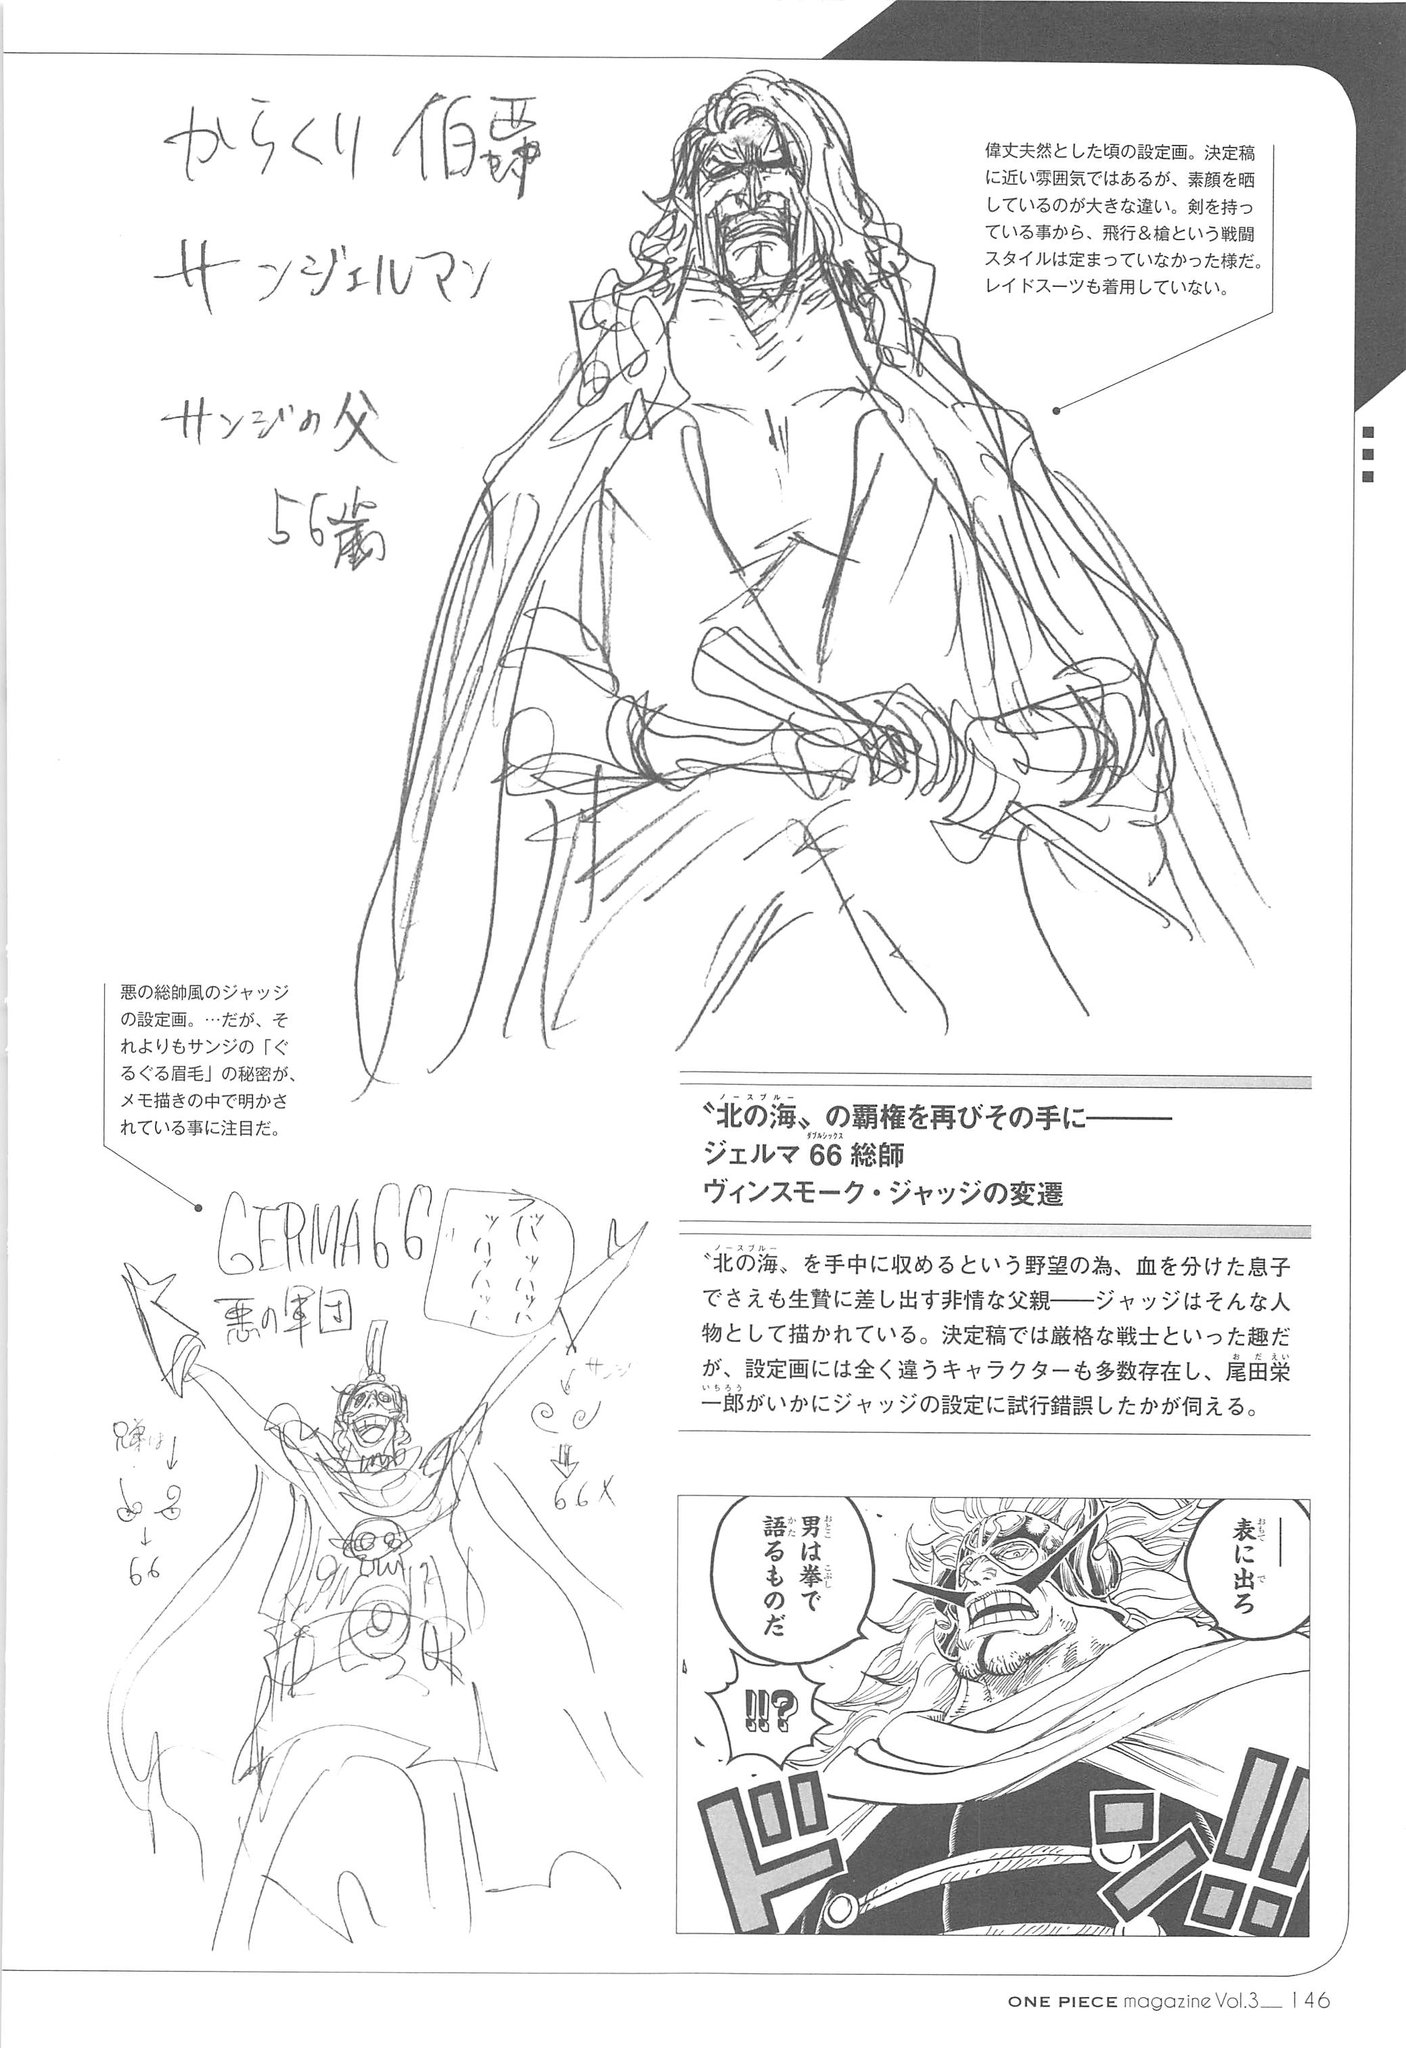 からくり 伯爵
サンジェルマン
サンジの父
56歳
偉丈夫然とした頃の設定画。決定稿
に近い雰囲気ではあるが、素顔を晒
しているのが大きな違い。剣を持っ
ている事から、飛行＆槍という戦闘
スタイルは定まっていなかった様だ。
レイドスーツも着用していない。
悪の総帥風のジャッジ
の設定画。…だが、そ
れよりもサンジの「ぐ
るぐる眉毛」の秘密が、
メモ描きの中で明かさ
れている事に注目だ。
GERMA66
悪の軍団
サンジ
66 X
兄弟は
66
ノースブルー
〝北の海〟の覇権を再びその手に———
ダブルシックス
ジェルマ 66 総帥
ヴィンスモーク・ジャッジの変遷
ノースブルー
〝北の海〟を手中に収めるという野望の為、血を分けた息子
でさえも生贄に差し出す非情な父親——ジャッジはそんな人
物として描かれている。決定稿では厳格な戦士といった趣だ
おだえい
が、設定画には全く違うキャラクターも多数存在し、尾田栄
いちろう
一郎がいかにジャッジの設定に試行錯誤したかが伺える。
——
表に出ろ
おもて で
男は拳で
おとこ こぶし
語るものだ
かた
!!?
ドン!!
ONE PIECE magazine Vol.3__ 146